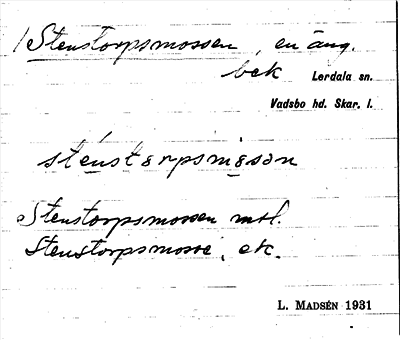 1/ Stenstorpsmossen, en äng.
bek
Lerdala sn.
Vadsbo hd. Skar. l.
sténstɔrpsmɔ̀sən
Stenstorpsmossen mtl.
Stenstorpsmosse, ek.
L. MADSÉN 1931